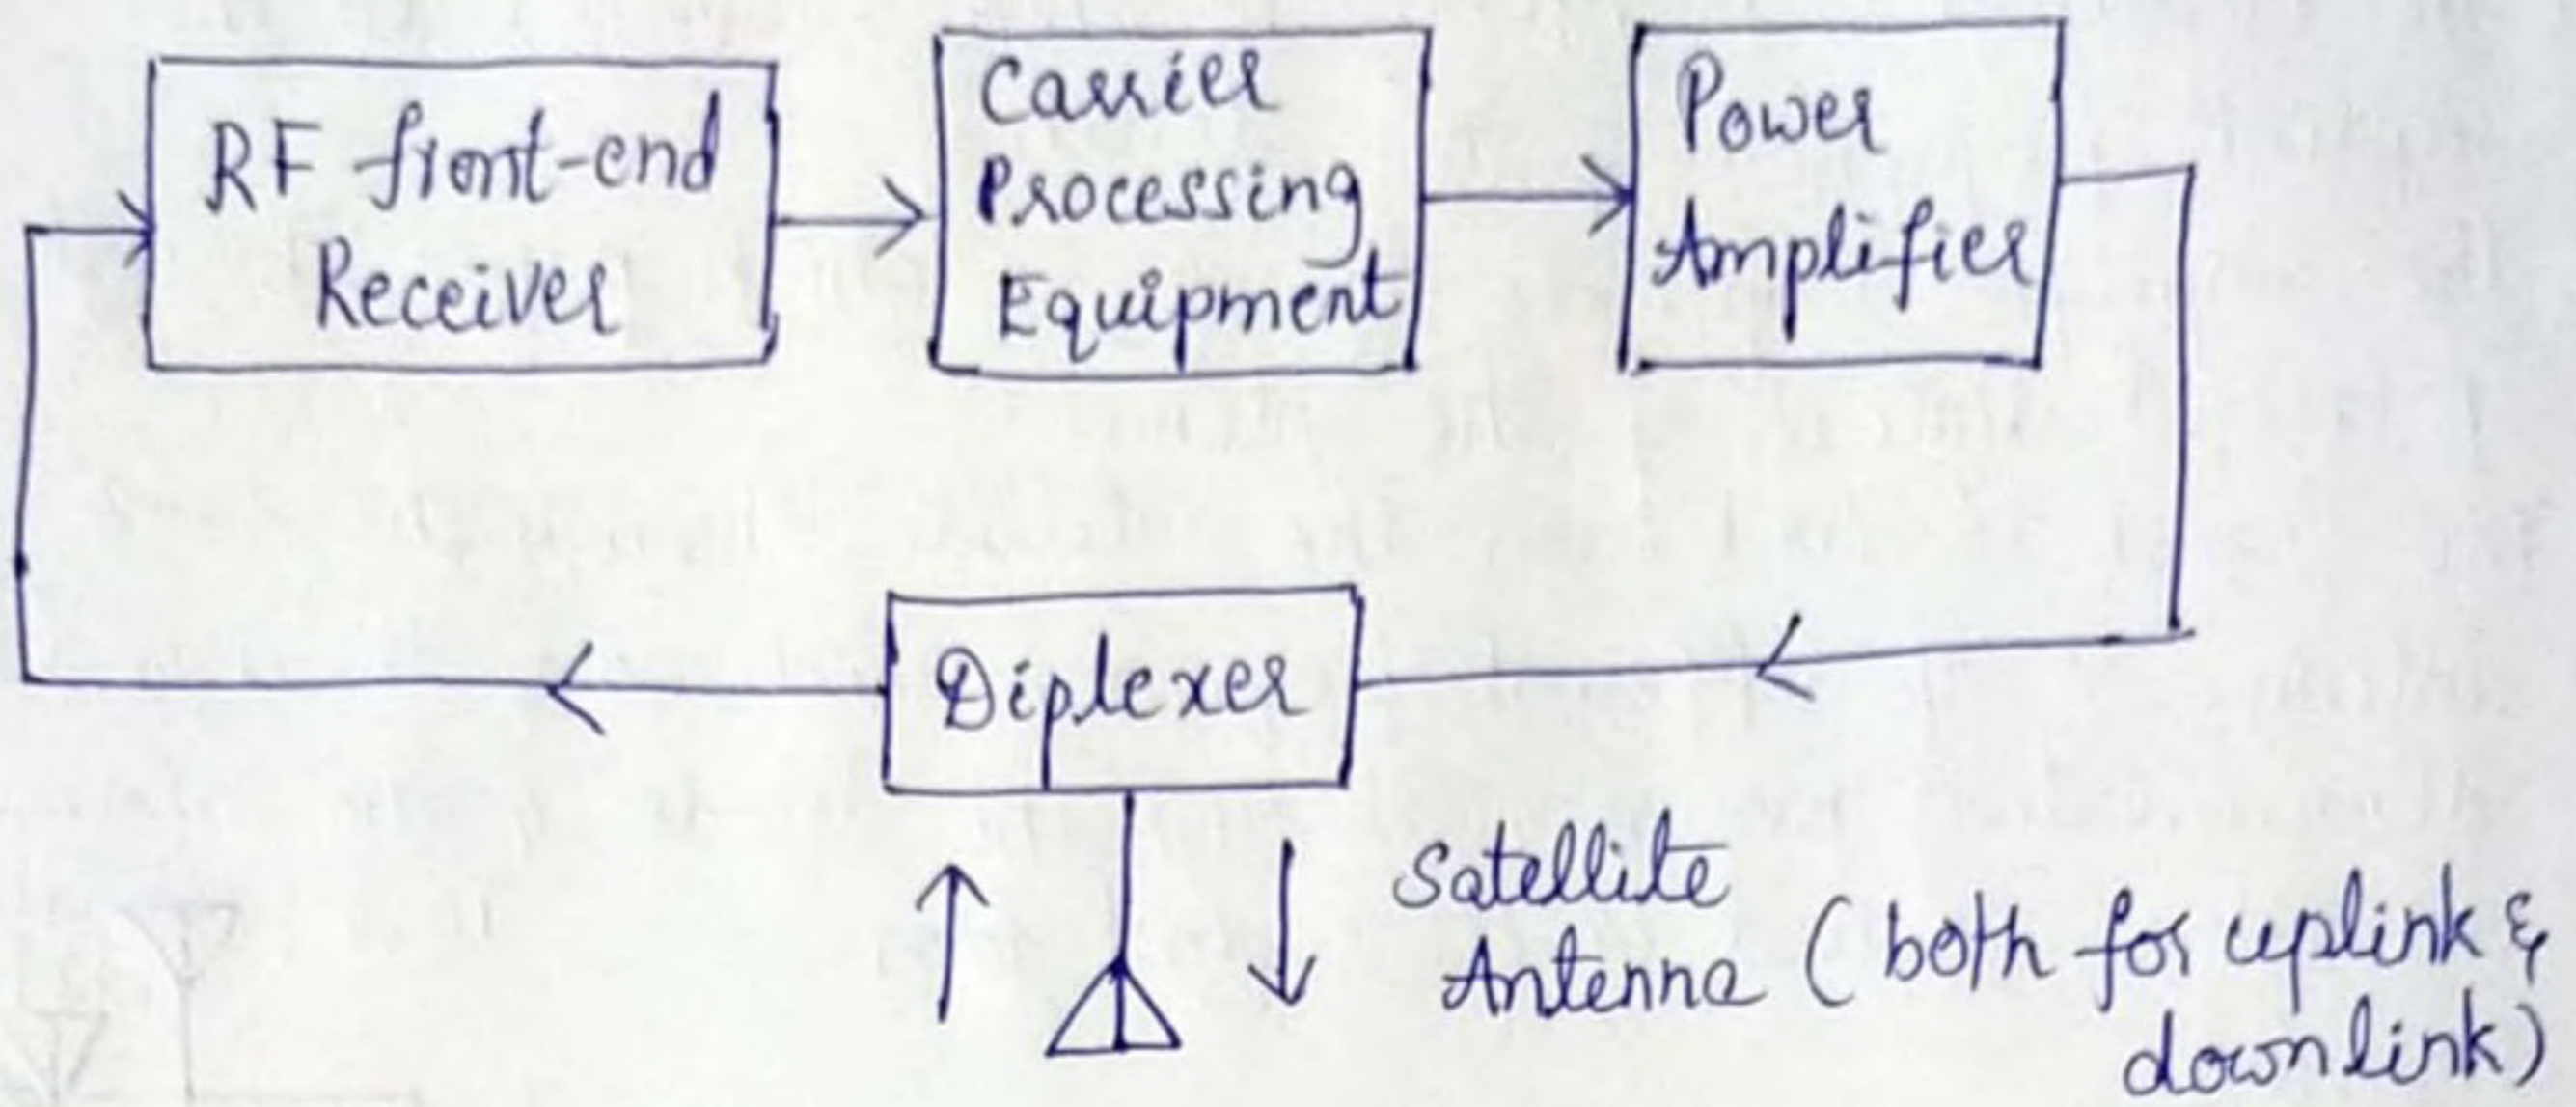 RF front-end
Receiver
Carrier
Processing
Equipment
Power
Amplifier
Diplexer
Satellite
Antenna (both for uplink &
downlink)